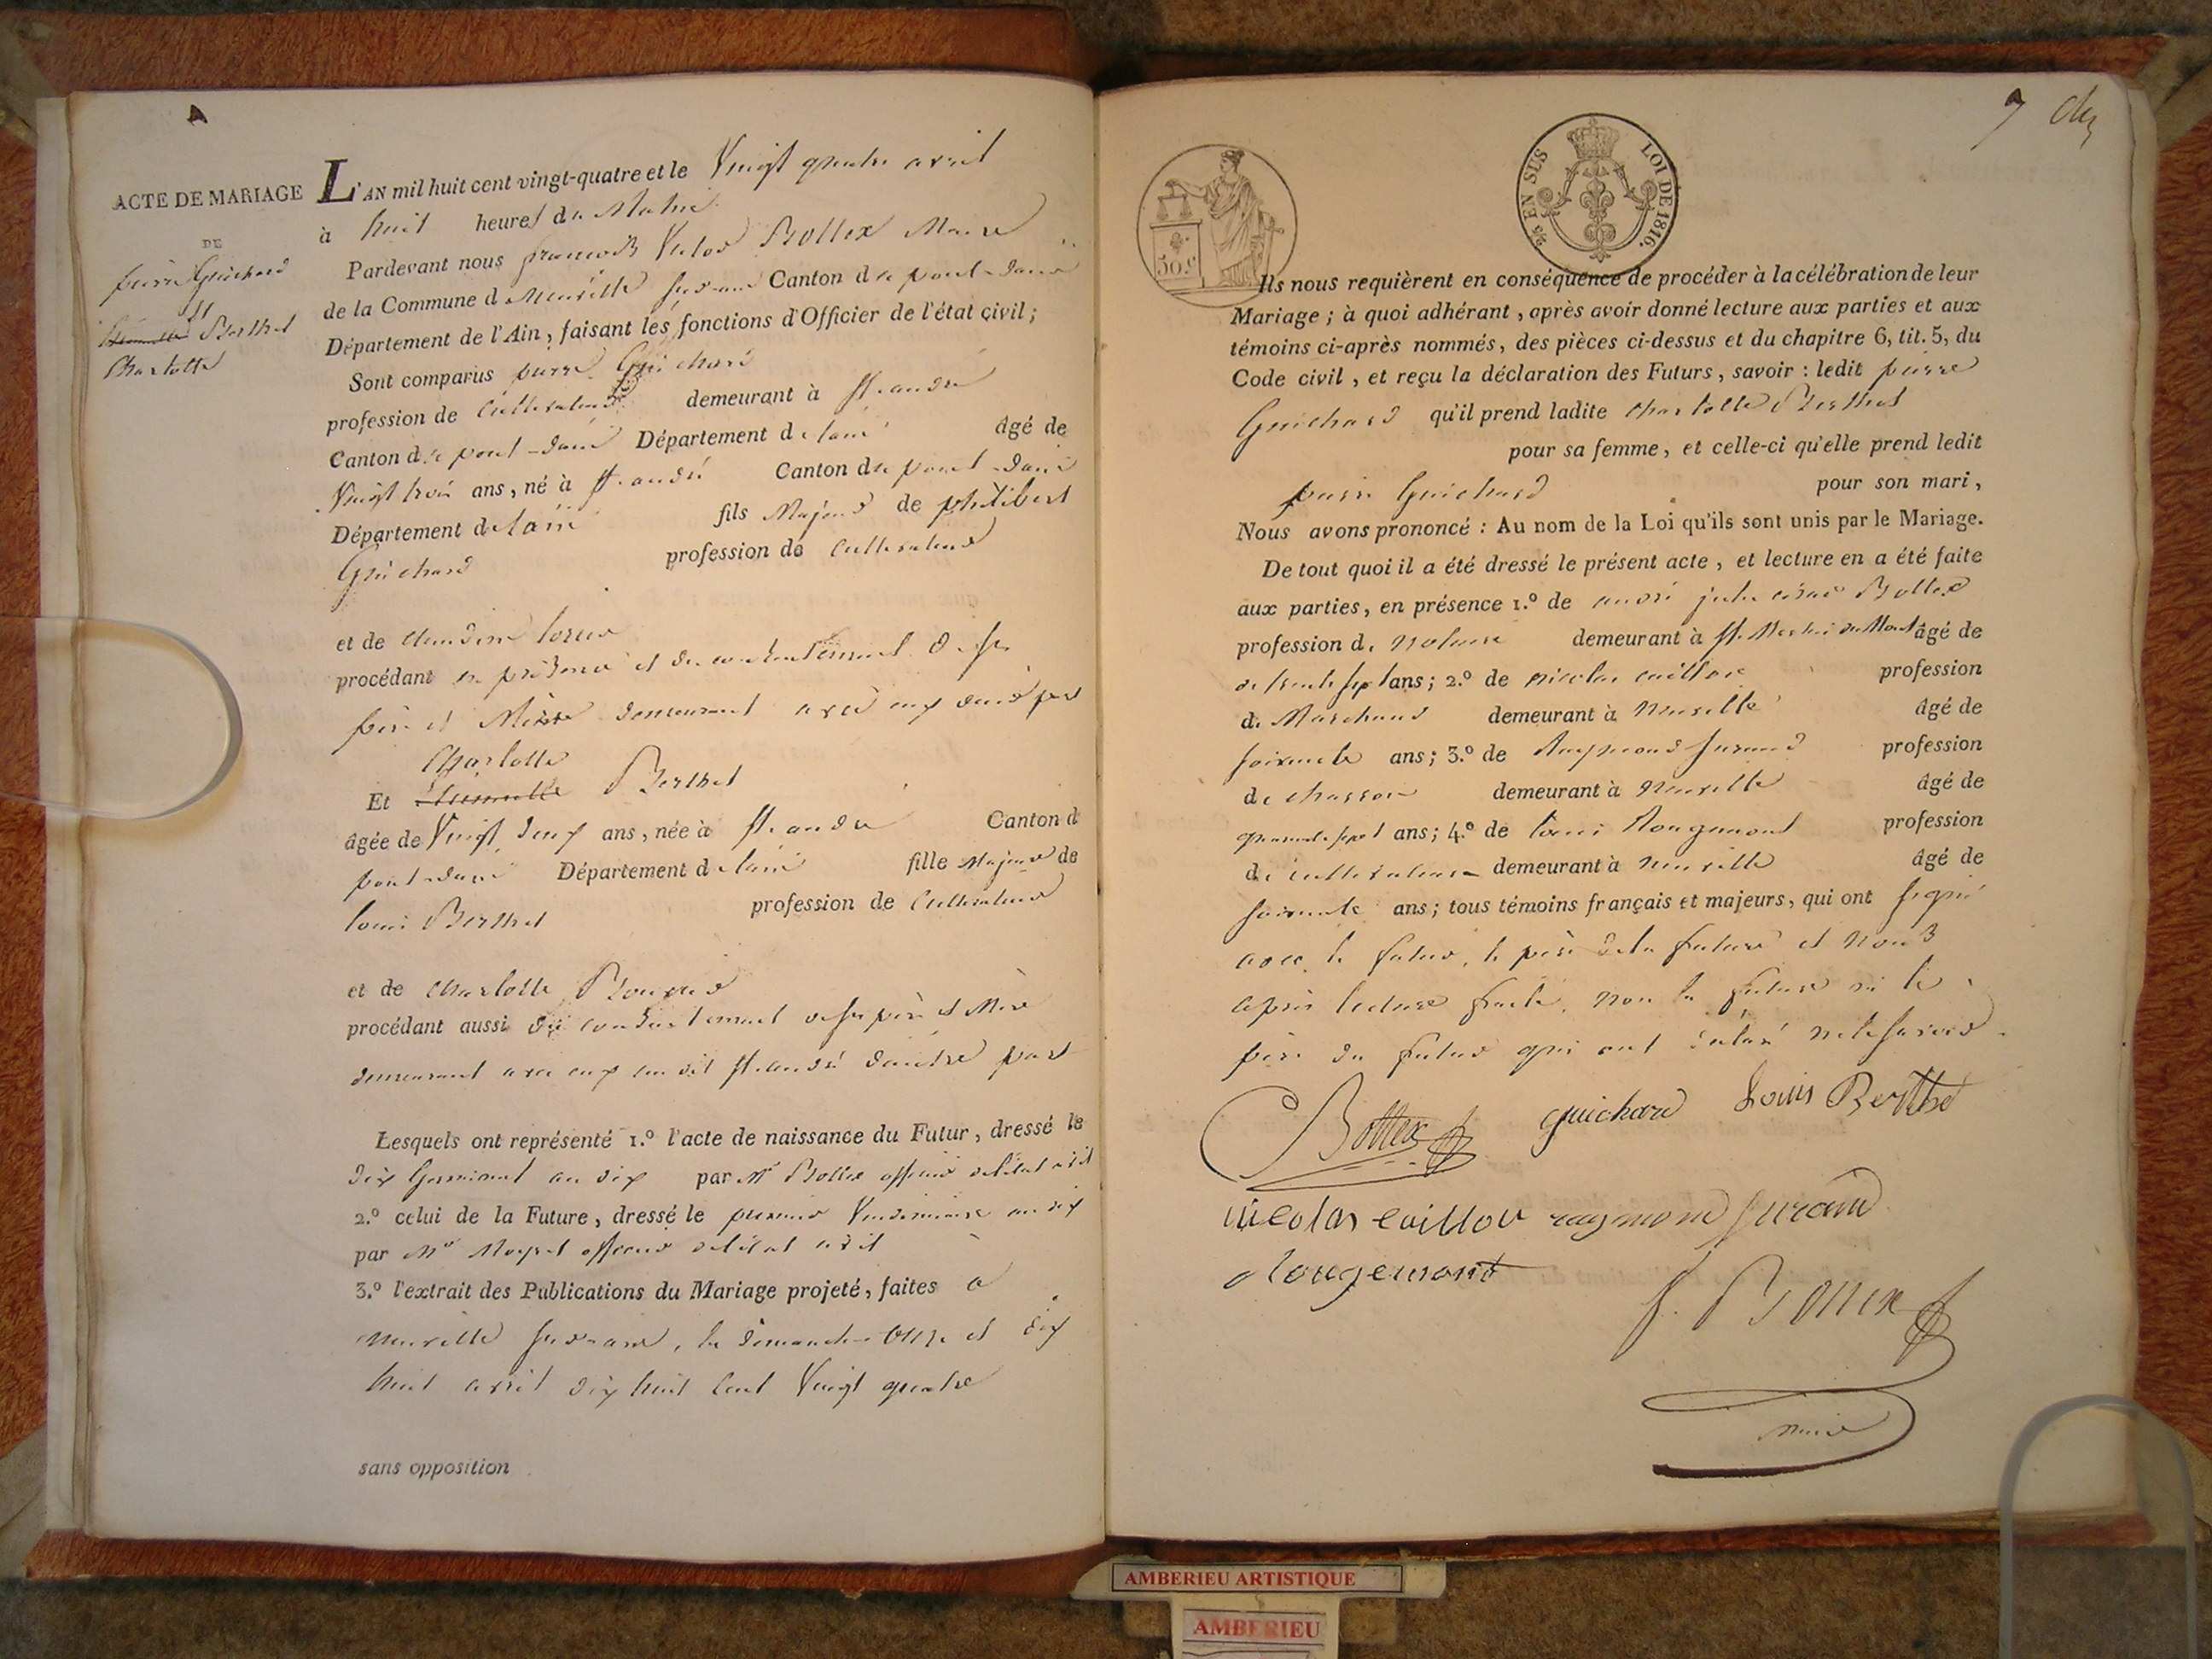 ACTE DE MARIAGE
DE
pierre Guichard
et
Berthet
Charlotte
L'AN mil huit cent vingt-quatre et le Vingt quatre avril
à huit heures du Matin
Pardevant nous françois Victor Bottex Maire
de la Commune de Neuville sur-ain Canton de pont-dain
Département de l'Ain, faisant les fonctions d'Officier de l'état civil;
Sont comparus pierre Guichard
profession de Cultivateur demeurant à St. andré
Canton de pont-dain Département de lain âgé de
Vingt trois ans, né à St. andré Canton de pont-dain
Département de lain fils Majeur de philibert
Guichard profession de Cultivateur
et de Claudine
procédant en présence et du consentement de ses
père et Mère demeurant avec eux dune part
Charlotte
Et Berthet
âgée de Vingt deux ans, née à St. andré Canton d
pont-dain Département de lain fille Majeure de
louis Berthet profession de Cultivateur
et de Charlotte
procédant aussi du consentement de ses père et Mère
demeurant avec eux au dit St. andré dautre part
Lesquels ont représenté 1.º l'acte de naissance du Futur, dressé le
dix Germinal an dix par Mr Bottex officier de létat civil
2.º celui de la Future, dressé le premier Vendemiaire an dix
par Mr officier de létat civil
3.º l'extrait des Publications du Mariage projeté, faites a
neuville sur-ain, les dimanches onze et dix
huit avril dix huit cent Vingt quatre
sans opposition
7
50 c.
25 EN SUS
LOI DE 1816.
Ils nous requièrent en conséquence de procéder à la célébration de leur
Mariage; à quoi adhérant, après avoir donné lecture aux parties et aux
témoins ci-après nommés, des pièces ci-dessus et du chapitre 6, tit. 5, du
Code civil, et reçu la déclaration des Futurs, savoir: ledit pierre
Guichard qu'il prend ladite charlotte Berthet
pour sa femme, et celle-ci qu'elle prend ledit
pierre Guichard pour son mari,
Nous avons prononcé: Au nom de la Loi qu'ils sont unis par le Mariage.
De tout quoi il a été dressé le présent acte, et lecture en a été faite
aux parties, en présence 1.º de andré jules césar Bottex
profession de notaire demeurant à St. Martin du Mont âgé de
de trente sept ans; 2.º de nicolas caillou profession
de Marchand demeurant à Neuville âgé de
soixante ans; 3.º de Raymond profession
de charron demeurant à neuville âgé de
quarante sept ans; 4.º de louis Rougemont profession
de cultivateur demeurant à neuville âgé de
soixante ans; tous témoins français et majeurs, qui ont signé
avec le futur, le père de la future et nous
après lecture faite, non la future ni le
père du futur qui ont déclaré ne le savoir.
Bottex guichard Louis Berthet
nicolas caillou raymond
Rougemont
f. Bottex
maire
AMBERIEU ARTISTIQUE
AMBERIEU